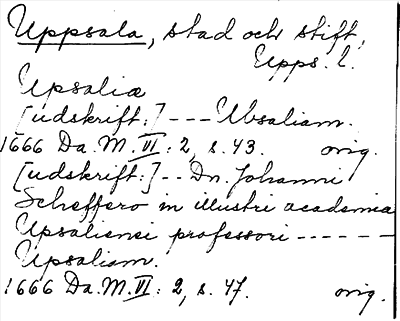 Uppsala, stad och stift,
Upps. l.
Upsaliæ
[udskrift:] --- Ubsaliam.
1666 Da. M. VI: 2, s. 43. orig.
[udskrift:] -- Dn. Johanni
Scheffero in illustri academia
Upsaliensi professori ------
Upsaliam.
1666 Da. M. VI: 2, s. 47. orig.